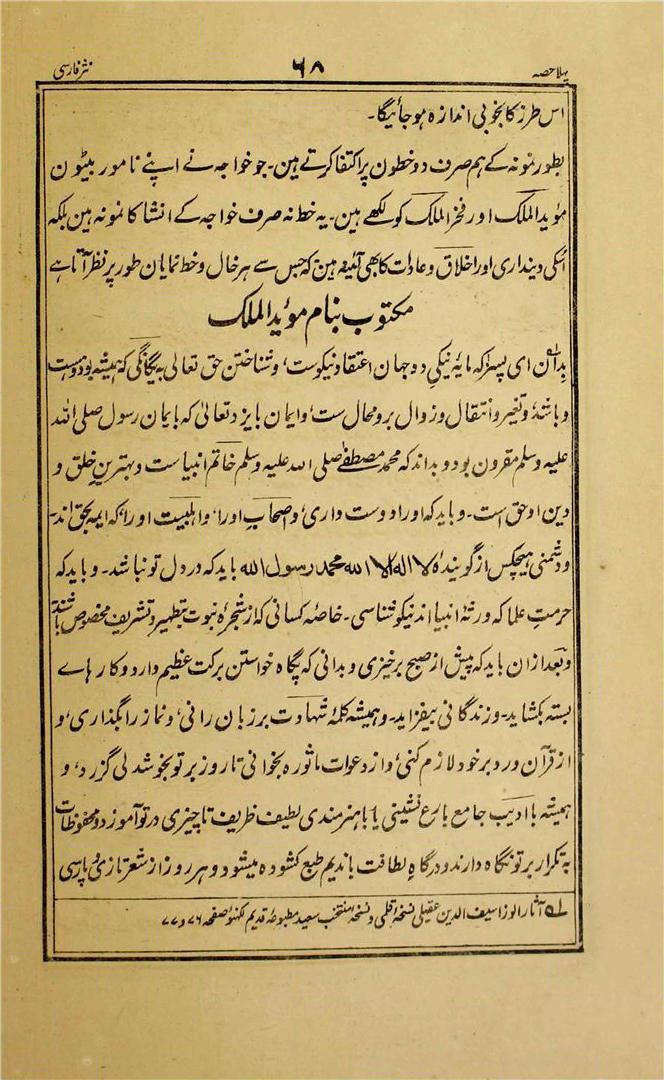 پہلا حصہ ۶۸ نثر فارسی
اس طرز کا بخوبی اندازہ ہو جائیگا۔
بطور نمونہ کے ہم صرف دو خطون پر اکتفا کرتے ہین۔ جو خواجہ نے اپنے نامور بیٹون
مؤید الملک اور فخر الملک کو لکھے ہین۔ یہ خط نہ صرف خواجہ کے انشا کا نمونہ ہین بلکہ
اُسکی دینداری اور اخلاق و عادات کا بھی آئینہ ہین کہ جس سے ہر خال و خط نمایان طور پر نظر آتا ہے
مکتوب بنام مؤید الملک
بدان لہ ای پسر! کہ مایۂ نیکیِ دو جہان اعتقاد نیکوست، و شناختن حق تعالی بہ یگانگی کہ ہمیشہ بود و ہست
و باشد، و تغیر و انتقال و زوال برو محال ست، و ایمان بایزد تعالیٰ کہ بایمان رسول صلی اللہ
علیہ وسلم مقرون بود و بداند کہ محمد مصطفےٰ صلی اللہ علیہ وسلم خاتم انبیاست و بہترین خلق و
دین او حق است۔ و باید کہ اورا دوست داری، و اصحابِ اورا، و اہلبیت اورا، کہ ایمہ بحق اند۔
و دشمنی ہیچکس از گویندہ لا الہ الا اللہ محمد رسول اللہ باید کہ در دل تو نباشد۔ و باید کہ
حرمتِ علما کہ ورثۂ انبیا اند نیکو شناسی۔ خاصہ کسانی کہ از شجرۂ نبوت بتطہیر و تشریف مخصوص باشند
و بعد ازان باید کہ پیش از صبح برخیزی و بدانی کہ پگاہ خواستن برکت عظیم دارد و کارہاے
بستہ بکشاید۔ و زندگانی بیفزاید۔ و ہمیشہ کلمۂ شہادت بر زبان رانی، و نماز را بگذاری، و
از قرآن ورد بر خود لازم کنی، و از دعوات ماثورہ بخوانی تا روز بر تو بخوشدلی گزرد، و
ہمیشہ با ادیب جامع بارع نشینی یا با ہنرمندی لطیف ظریف تا چیزی در تو آموزد و محفوظات
بہ تکرار بر تو نگاہ دارند و درگاہ لطافت با ندیم طبع کشودہ میشود و ہر روز از شعر تازی و پارسی
لہ آثار الوزرا سیف الدین عقیلی نسخہ قلمی و نسخہ منتخب سعید مطبوعہ قدیم لکھنؤ صفحہ ۷۶ و ۷۷